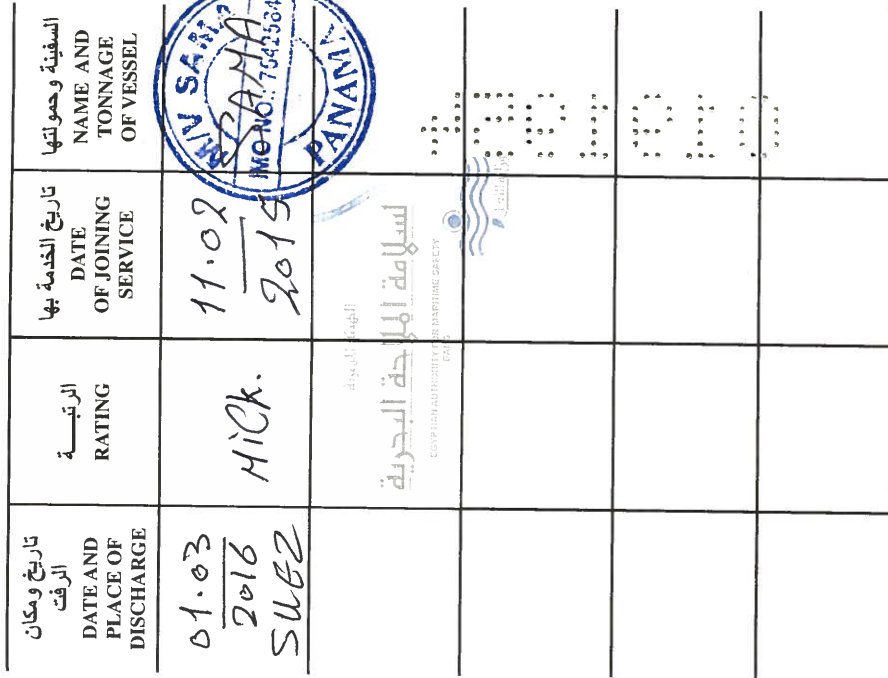 السفينة وحمولتها
NAME AND
TONNAGE
OF VESSEL
تاريخ الخدمة بها
DATE
OF JOINING
SERVICE
الرتبـــة
RATING
تاريخ ومكان
الرفت
DATE AND
PLACE OF
DISCHARGE
M/V SAMA
SAMA
IMO NO.:
PANAMA
11.02
2015
MiCk.
01.03
2016
SUEZ
لسلامة الملاحة البحرية
EGYPTIAN AUTHORITY FOR MARITIME SAFETY
EAMS